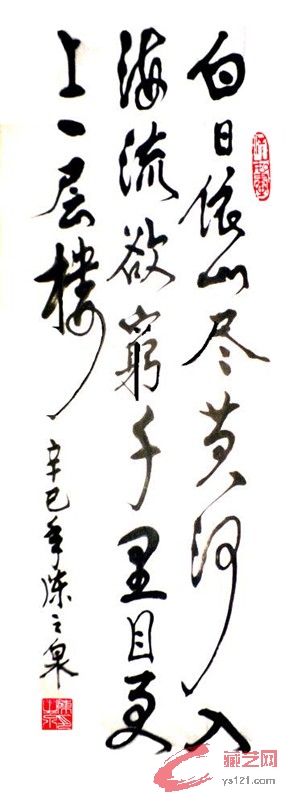 白日依山尽黄河入
海流欲穷千里目更
上一层楼
辛巳年陈之泉
藏艺网
ys121.com